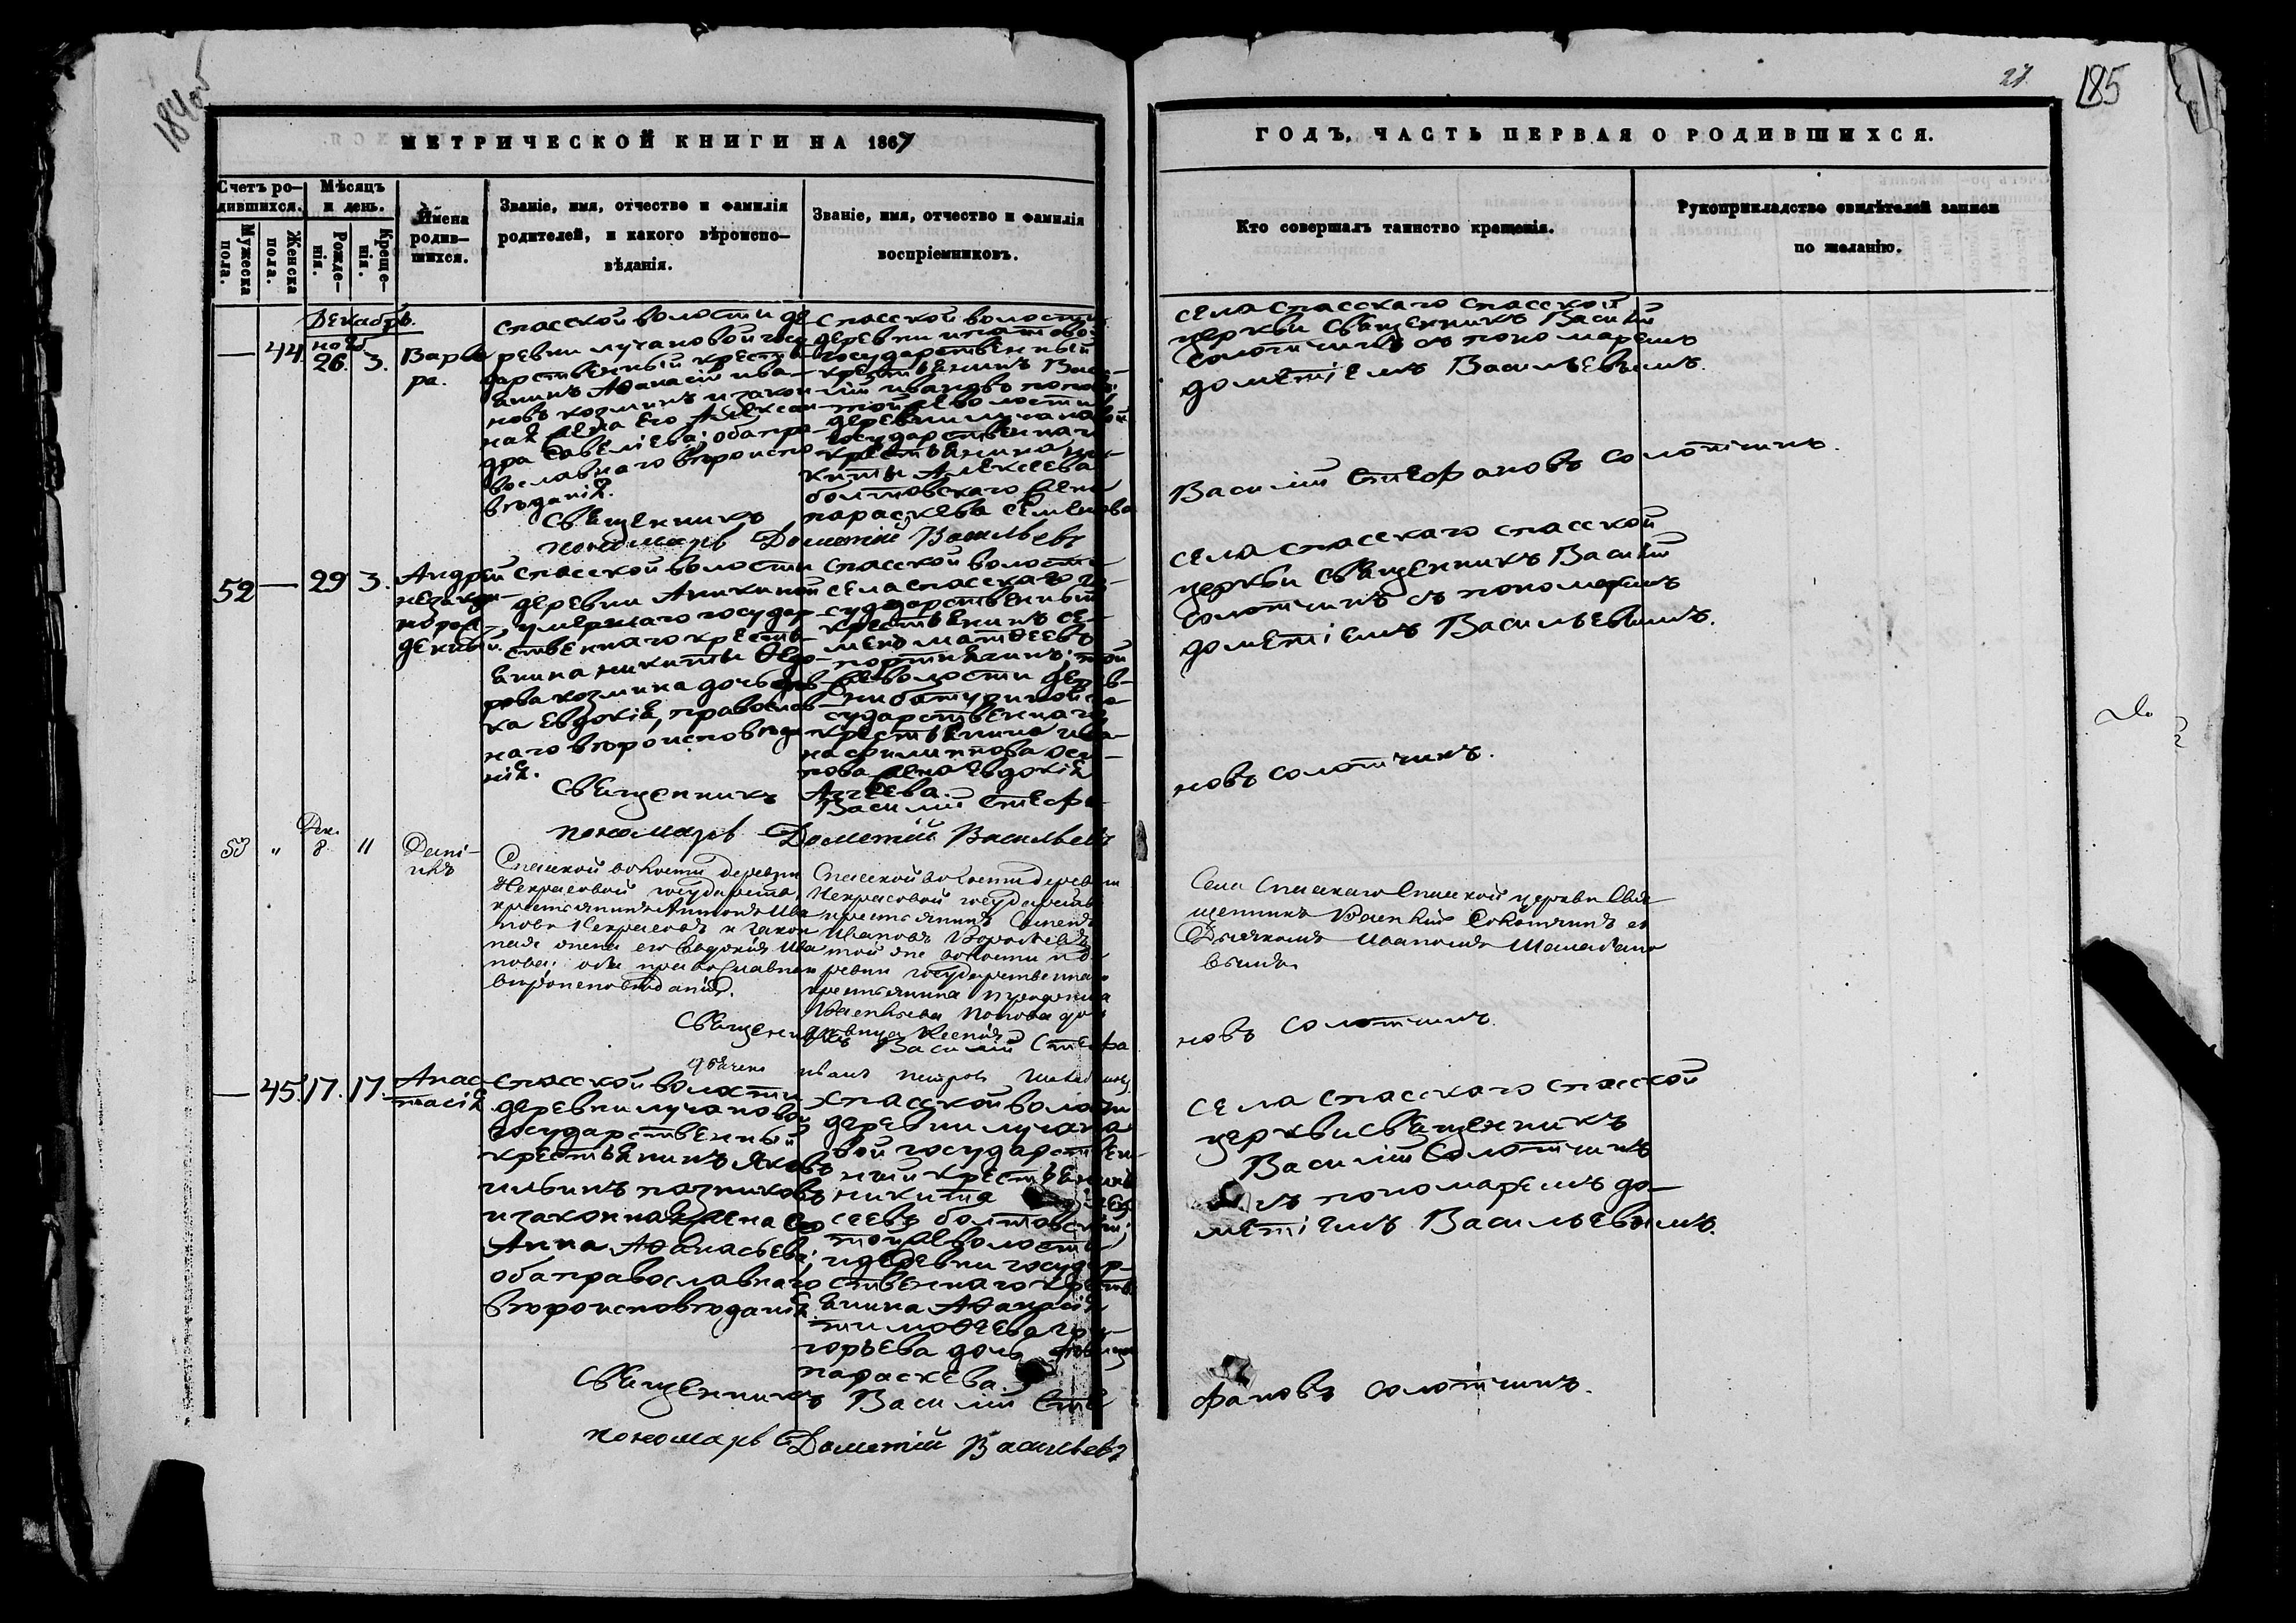 184об
МЕТРИЧЕСКОЙ КНИГИ НА 1867
Счетъ ро-
дившихся.
Мужеска
пола.
Женска
пола.
Мѣсяцъ
и день.
Рожде-
нія.
Креще-
нія.
Имена
родив-
шихся.
Званіе, имя, отчество и фамилія
родителей, и какого вѣроиспо-
вѣданія.
Званіе, имя, отчество и фамилія
воспріемниковъ.
Декабрь.
нояб
— 44. 26. 3.
Варва
ра.
спасской волости де
ревни лучановой госу
дарственный крестья
янинъ Аѳанасій ива-
новъ козминъ и закон
ная жена его Алексан
дра Савеліева; оба пра-
вославнаго вѣроиспо
вѣданія.
спасской волости
деревни
государственный
крестьянинъ Васи-
лій ивановъ
той же волости
деревни лучановой
государственнаго
крестьянина ни-
киты Алексеева
болтовскаго жена
параскева семенова
Священникъ
пономарь Дометій Васильевъ
52 — 29 3.
Андрей
незакон-
норож-
денный.
спасской волости
деревни Аникиной
умершаго государ-
ственнаго кресть-
янина никиты Ѳедо-
рова козмина дочь дѣв-
ка евдокія, православ-
наго вѣроисповѣда
нія.
спасской волости
села спасскаго го-
сударственный
крестьянинъ се-
менъ матѳеевъ
той
же волости дерев-
ни батуриной го-
сударственнаго
крестьянина ива-
на филиппова оси-
пова жена евдокія
Аггеева.
Священникъ Василій Стефа-
пономарь Дометій Васильевъ
53 " Дек. 8 "
Спасской волости деревни
Некрасовой государств.
крестьянинъ Антонъ Ива
новъ Некрасовъ и закон
ная жена его Евдокія Ива
нова; оба православнаго
вѣроисповѣданія.
Спасской волости деревни
Некрасовой государств.
крестьянинъ Семенъ
Ивановъ
той же волости и де
ревни государственнаго
крестьянина
Васильева Попова до
Ксенія
Священникъ Василій Стефа
дьячекъ иванъ петровъ
— 45. 17. 17.
Анас-
тасія
спасской волости
деревни лучановой
государственный
крестьянинъ Яковъ
ильинъ
и законная жена его
Анна Аѳанасьева;
оба православнаго
вѣроисповѣданія
спасской волости
деревни лучано
вой государствен-
ный крестьянинъ
никита
сеевъ болтовскій;
той же волости
и деревни государ-
ственнаго кресть
янина Аѳанасія
тимоѳеева гри-
горьева дочь дѣвица
параскева.
Священникъ Василій Сте
пономарь Дометій Васильевъ
27.
185
ГОДЪ, ЧАСТЬ ПЕРВАЯ О РОДИВШИХСЯ.
Кто совершалъ таинство крещенія.
Рукоприкладство свидѣтелей записи
по желанію.
села спасскаго спасской
церкви священникъ Василій
солотчинъ съ пономаремъ
дометіемъ Васильевымъ.
Василій Стефановъ солотчинъ.
села спасскаго спасской
церкви священникъ Василій
солотчинъ съ пономаремъ
дометіемъ Васильевымъ.
новъ солотчинъ.
Села Спасскаго Спасской церкви Свя
щенникъ Василій Солотчинъ съ
Дьячкомъ Иваномъ
вымъ
новъ солотчинъ.
села спасскаго спасской
церкви священникъ
Василій Солотчинъ
съ пономаремъ до-
метіемъ Васильевымъ.
фановъ солотчинъ.